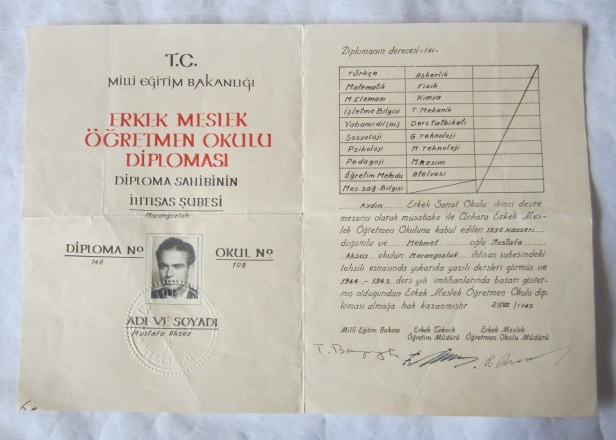 T.C.
MİLLİ EĞİTİM BAKANLIĞI
ERKEK MESLEK
ÖĞRETMEN OKULU
DİPLOMASI
DİPLOMA SAHİBİNİN
İHTİSAS ŞUBESİ
Marangozluk
DİPLOMA Nº
148
OKUL Nº
108
ADI VE SOYADI
Mustafa Aksoy
Diplomanın derecesi -iyi-
Türkçe Askerlik
Matematik Fizik
M. Elemanı Kimya
İşletme Bilgisi T. Mekanik
Yabancı dil Ders Tatbikatı
Sosyoloji G. Teknoloji
Psikoloji M. Teknoloji
Pedagoji M. Resim
Öğretim Metodu Atelyesi
Mes. sağ. Bilgisi
Aydın Erkek Sanat Okulu ikinci devre
mezunu olarak müsabaka ile Ankara Erkek Mes-
lek Öğretmen Okuluna kabul edilen
doğumlu ve Mehmet oğlu Mustafa
Aksoy okulun Marangozluk ihtisas şubesindeki
tahsili esnasında yukarıda yazılı dersleri görmüş ve
1944 - 1945 ders yılı imtihanlarında başarı göster-
miş olduğundan Erkek Meslek Öğretmen Okulu dip-
loması almağa hak kazanmıştır 21/VIII/1945
Milli Eğitim Bakanı
Erkek Teknik
Öğretim Müdürü
Erkek Meslek
Öğretmen Okulu Müdürü